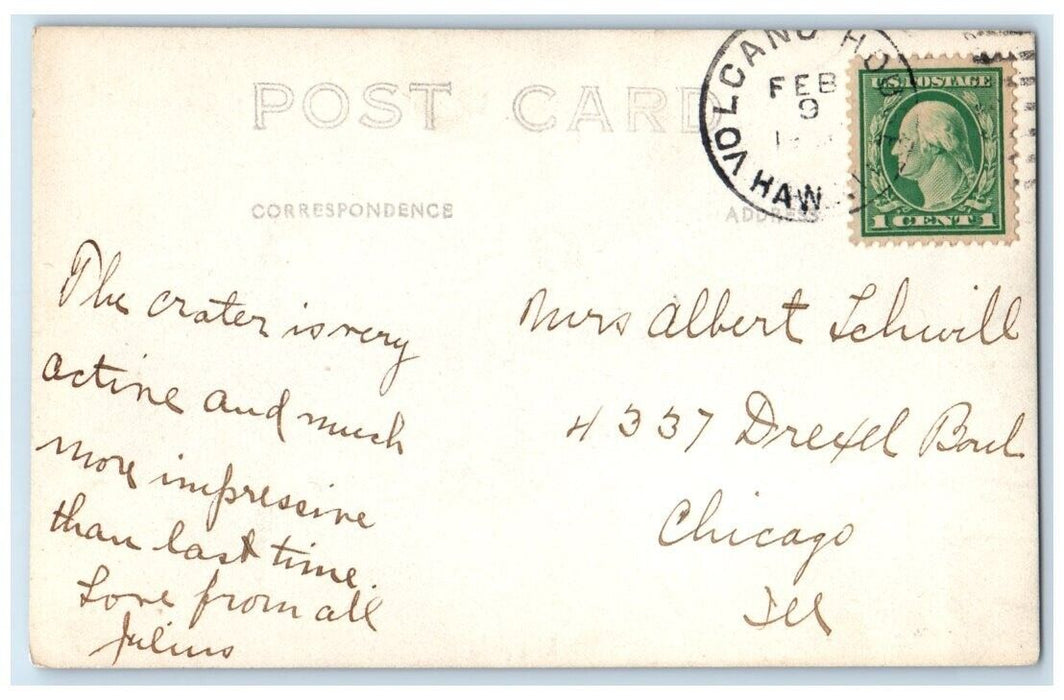 POST CARD
VOLCANO HOU
FEB
9
HAW.
U.S. POSTAGE
1 CENT 1
CORRESPONDENCE
ADDRESS
The crater is very
active and much
more impressive
than last time.
Love from all
Julius
Mrs Albert Schwill
4337 Drexel Boul
Chicago
Ill